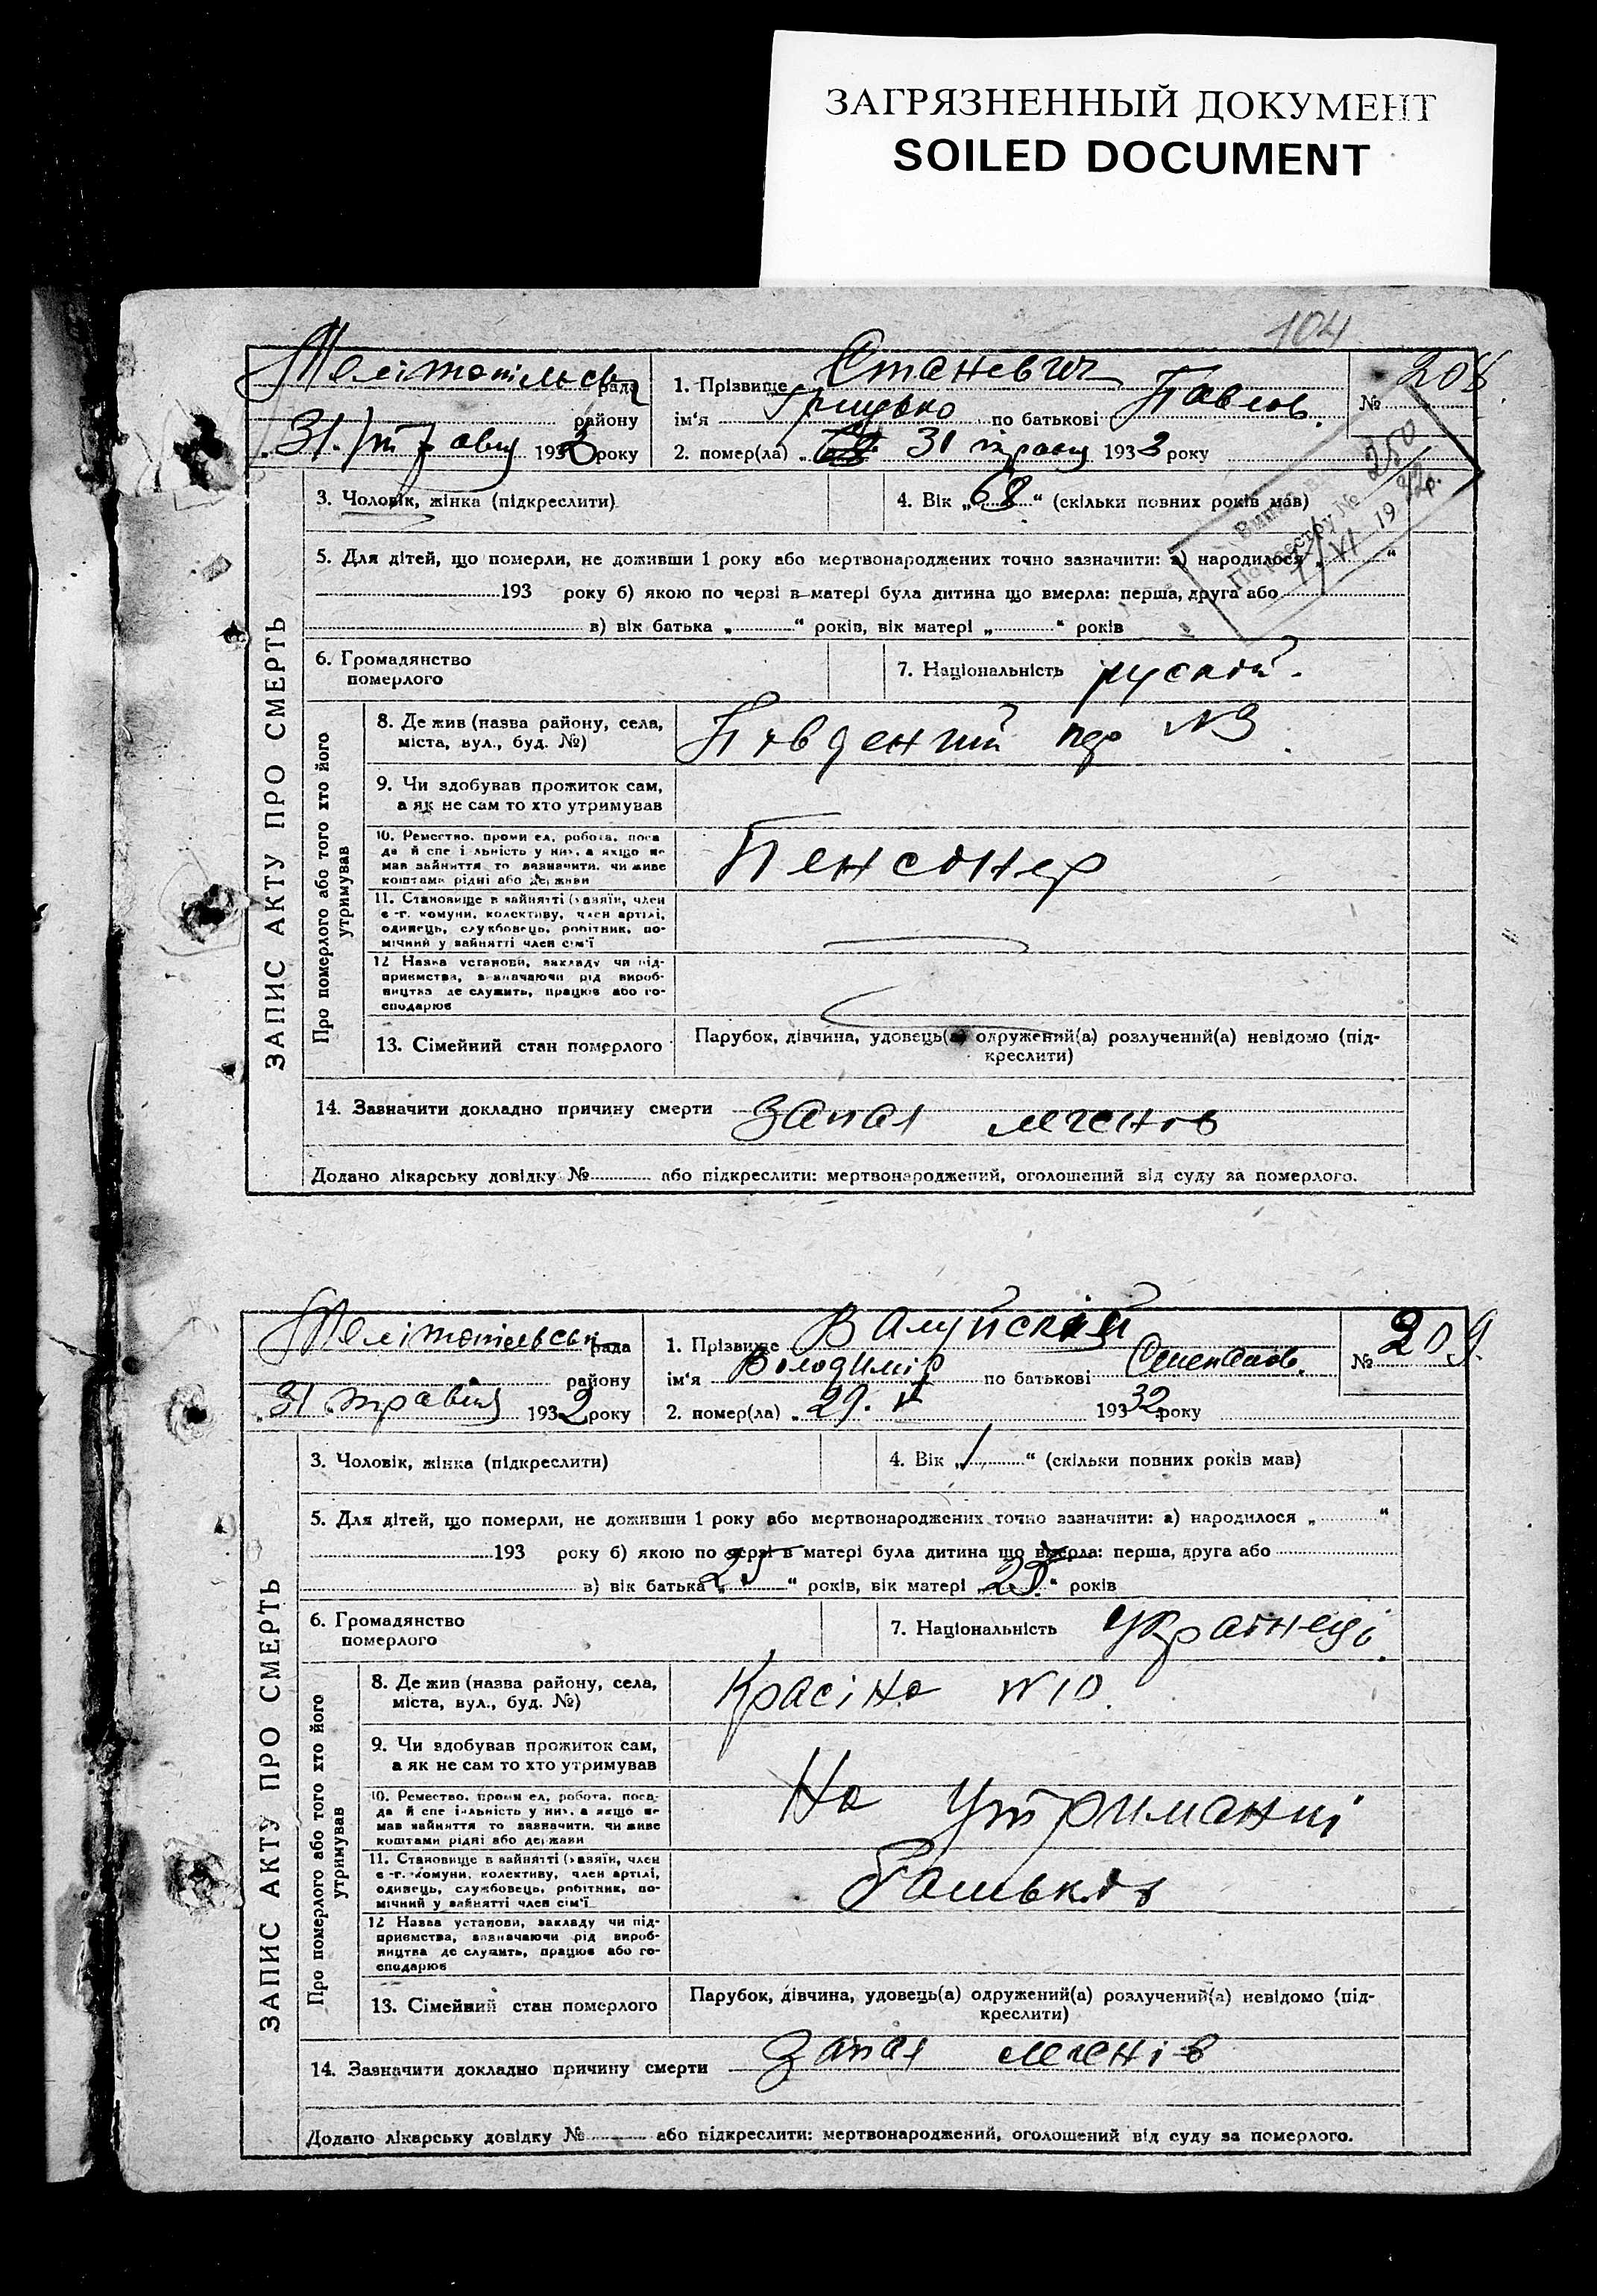 ЗАГРЯЗНЕННЫЙ ДОКУМЕНТ
SOILED DOCUMENT
104
Мелітопільськ рада
району
31. травня 1932 року
1. Прізвище Станевич
ім‘я Грицько по батькові Павлов.
2. помер(ла) „ 31 травня 1932 року
№ 208
По реєстру № 250
VI 19 32р.
ЗАПИС АКТУ ПРО СМЕРТЬ
3. Чоловік, жінка (підкреслити)
4. Вік „68“ (скільки повних років мав)
5. Для дітей, що померли, не доживши 1 року або мертвонароджених точно зазначити: а) народилося „ “
193 року б) якою по черзі в матері була дитина що вмерла: перша, друга або
в) вік батька „ “ років, вік матері „ “ років
6. Громадянство
померлого
7. Національність руский.
Про померлого або того хто його
утримував
8. Де жив (назва району, села,
міста, вул., буд. №)
Південий пер №3
9. Чи здобував прожиток сам,
а як не сам то хто утримував
10. Ремество, проми ел, робота, поса
да й спе і льність у них, а якщо не
мав зайняття то зазначити, чи живе
коштами рідні або держави
Пенсонер
11. Становище в зайнятті (хазяїн, член
с -г. комуни, колективу, член артілі,
одинець, службовець, робітник, по-
мічний у зайнятті член сім‘ї
12 Назва установи, закладу чи під-
приємства, зазначаючи рід вироб-
ництва де служить, працює або го-
сподарює
13. Сімейний стан померлого
Парубок, дівчина, удовець(а) одружений(а) розлучений(а) невідомо (під-
креслити)
14. Зазначити докладно причину смерти Запал легенів
Додано лікарську довідку № або підкреслити: мертвонароджений, оголошений від суду за померлого.
Мелітопільськ рада
району
„31 травня 1932 року
1. Прізвище Валуйский
ім‘я Володимір по батькові
2. помер(ла) „29. V 19332року
№ 209.
ЗАПИС АКТУ ПРО СМЕРТЬ
3. Чоловік, жінка (підкреслити)
4. Вік „1“ (скільки повних років мав)
5. Для дітей, що померли, не доживши 1 року або мертвонароджених точно зазначити: а) народилося „ “
193 року б) якою по черзі в матері була дитина що вмерла: перша, друга або
в) вік батька „25“ років, вік матері „25“ років
6. Громадянство
померлого
7. Національність
Про померлого або того хто його
утримував
8. Де жив (назва району, села,
міста, вул., буд. №)
Красіна №10.
9. Чи здобував прожиток сам,
а як не сам то хто утримував
10. Ремество, проми ел, робота, поса-
да й спе іальність у них, а якщо не
мав зайняття то зазначити, чи живе
коштами рідні або держави
На утриманні
11. Становище в зайнятті (хазяїн, член
с -г. комуни, колективу, член артілі,
одинець, службовець, робітник, по-
мічний у зайнятті член сім‘ї
батьків
12 Назва установи, закладу чи під-
приємства, зазначаючи рід вироб-
ництва де служить, працює або го-
сподарює
13. Сімейний стан померлого
Парубок, дівчина, удовець(а) одружений(а) розлучений(а) невідомо (під-
креслити)
14. Зазначити докладно причину смерти Запал легенів
Додано лікарську довідку № або підкреслити: мертвонароджений, оголошений від суду за померлого.